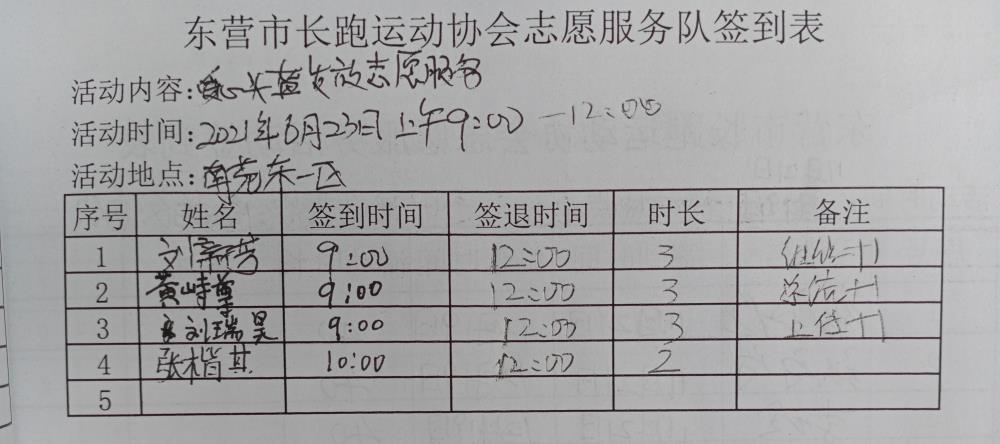 东营市长跑运动协会志愿服务队签到表
活动内容:爱心头盔发放志愿服务
活动时间:2021年6月23日上午9:00—12:00
活动地点:东一区
序号 姓名 签到时间 签退时间 时长 备注
1 文 9:00 12:00 3 +1
2 黄 9:00 12:00 3 总结+1
3 刘瑞昊 9:00 12:00 3 上传+1
4 张楷其 10:00 12:00 2
5